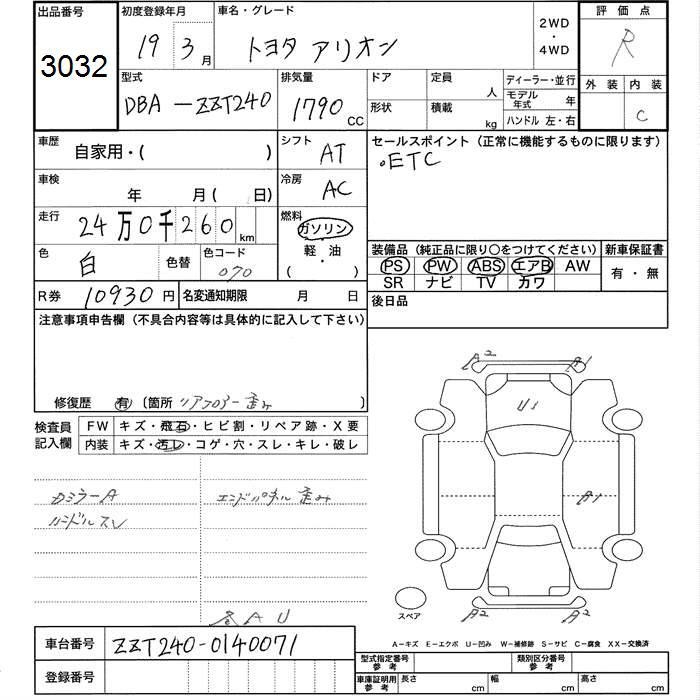 出品番号 初度登録年月 車名・グレード 2WD・4WD 評価点
3032 19 3月 トヨタ アリオン R
型式 排気量 ドア 定員 人 ディーラー・並行 外装 内装
DBA-ZZT240 1790 CC 形状 積載 kg モデル年式 年 C
ハンドル 左・右
車歴 自家用・( ) シフト AT セールスポイント (正常に機能するものに限ります)
・ETC
車検 年 月( 日) 冷房 AC
走行 24万0千260 km 燃料 ガソリン
軽・油
( )
色 白 色替 色コード 070
装備品 (純正品に限り○をつけてください) 新車保証書
PS PW ABS エアB AW 有・無
SR ナビ TV カワ
R券 10930円 名変通知期限 月 日 後日品
注意事項申告欄 (不具合内容等は具体的に記入して下さい)
修復歴 有 (箇所 リアフロアー歪み )
検査員記入欄 FW キズ・飛石・ヒビ割・リペア跡・X要
内装 キズ・汚レ・コゲ・穴・スレ・キレ・破レ
A2 A1
U1
A1
A2 A2
スペア
Dミラー A エンドパネル歪み
ハンドルスレ
各AU
車台番号 ZZT240-0140071
登録番号
A-キズ E-エクボ U-凹み W-補修跡 S-サビ C-腐食 XX-交換済
型式指定番号参考 類別区分番号参考
車庫証明用参考 長さ cm 幅 cm 高さ cm